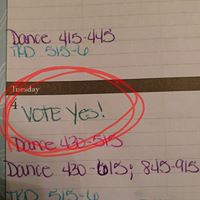 Dance 415-445
TKD 515-6
Tuesday
4 VOTE Yes!
Dance 430-515
Dance 430-615; 845-915
TKD 515-6